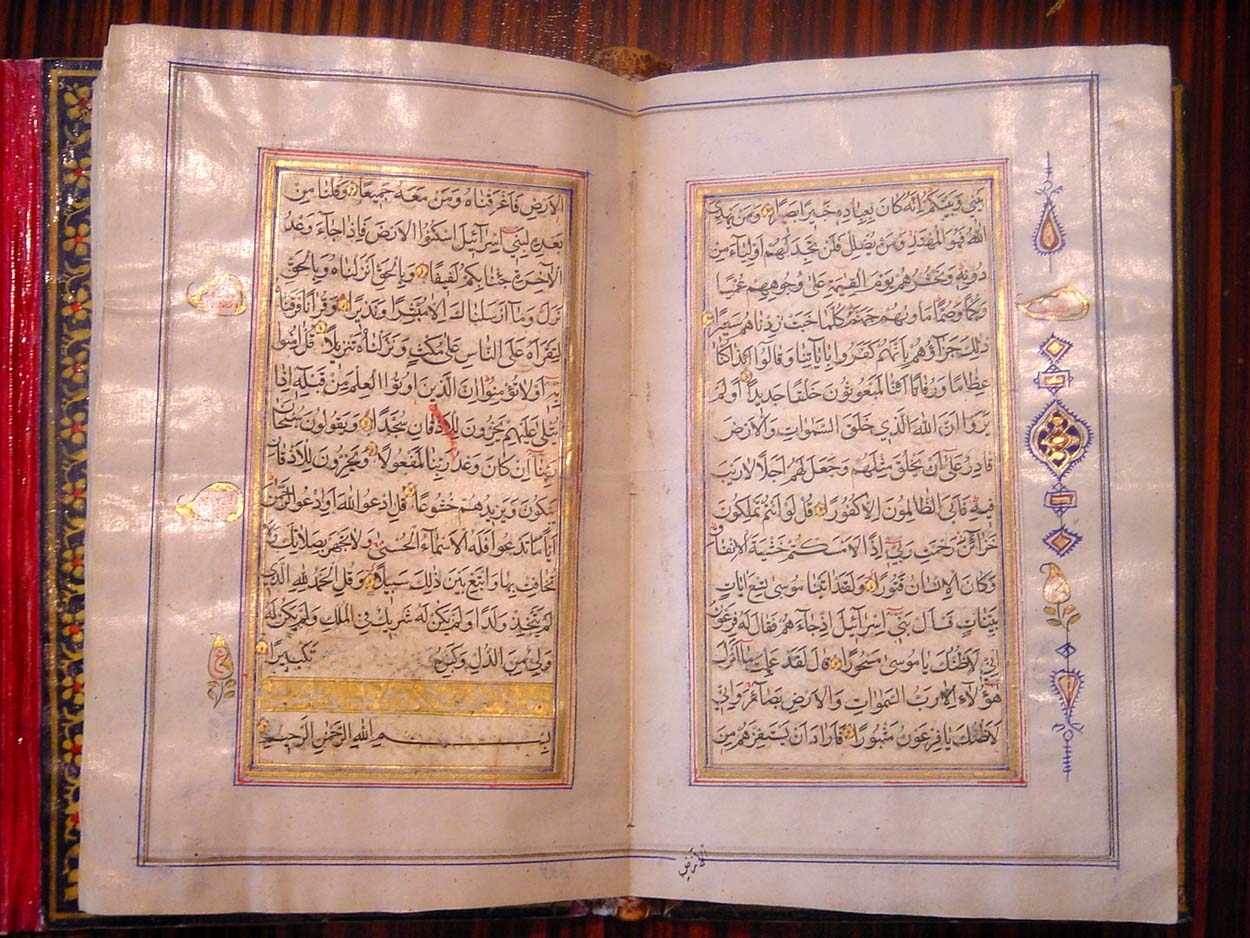 بيني وبينكم انه كان بعباده خبيرا بصيرا ومن يهدى
الله فهو المهتد ومن يضلل فلن تجد لهم اولياء من
دونه ونحشرهم يوم القيمة على وجوههم عميا
وبكما وصما ماويهم جهنم كلما خبت زدناهم سعيرا
ذلك جزاؤهم بانهم كفروا باياتنا وقالوا ءاذا كنا
عظاما ورفاتا ائنا لمبعوثون خلقا جديدا اولم
يروا ان الله الذي خلق السموات والارض
قادر على ان يخلق مثلهم وجعل لهم اجلا لا ريب
فيه فابى الظالمون الا كفورا قل لو انتم تملكون
خزائن رحمت ربي اذا لامسكتم خشية الانفاق
وكان الانسان قتورا ولقد اتينا موسى تسع ايات
بينات فسال بني اسرائيل اذ جاءهم فقال له فرعون
اني لاظنك يا موسى مسحورا قال لقد علمت ما انزل
هؤلاء الا رب السموات والارض بصائر واني
لاظنك يا فرعون مثبورا فاراد ان يستفزهم من
الارض
الارض فاغرقناه ومن معه جميعا وقلنا من
بعده لبني اسرائيل اسكنوا الارض فاذا جاء وعد
الاخرة جئنا بكم لفيفا وبالحق انزلناه وبالحق
نزل وما ارسلناك الا مبشرا ونذيرا وقرانا فرقناه
لتقراه على الناس على مكث ونزلناه تنزيلا قل امنوا
به اولا تؤمنوا ان الذين اوتوا العلم من قبله اذا
يتلى عليهم يخرون للاذقان سجدا ويقولون سبحان
ربنا ان كان وعد ربنا لمفعولا ويخرون للاذقان
يبكون ويزيدهم خشوعا قل ادعوا الله او ادعوا الرحمن
ايا ما تدعوا فله الاسماء الحسنى ولا تجهر بصلاتك ولا
تخافت بها وابتغ بين ذلك سبيلا وقل الحمد لله الذي
لم يتخذ ولدا ولم يكن له شريك في الملك ولم يكن له
ولي من الذل وكبره تكبيرا
بسم الله الرحمن الرحيم